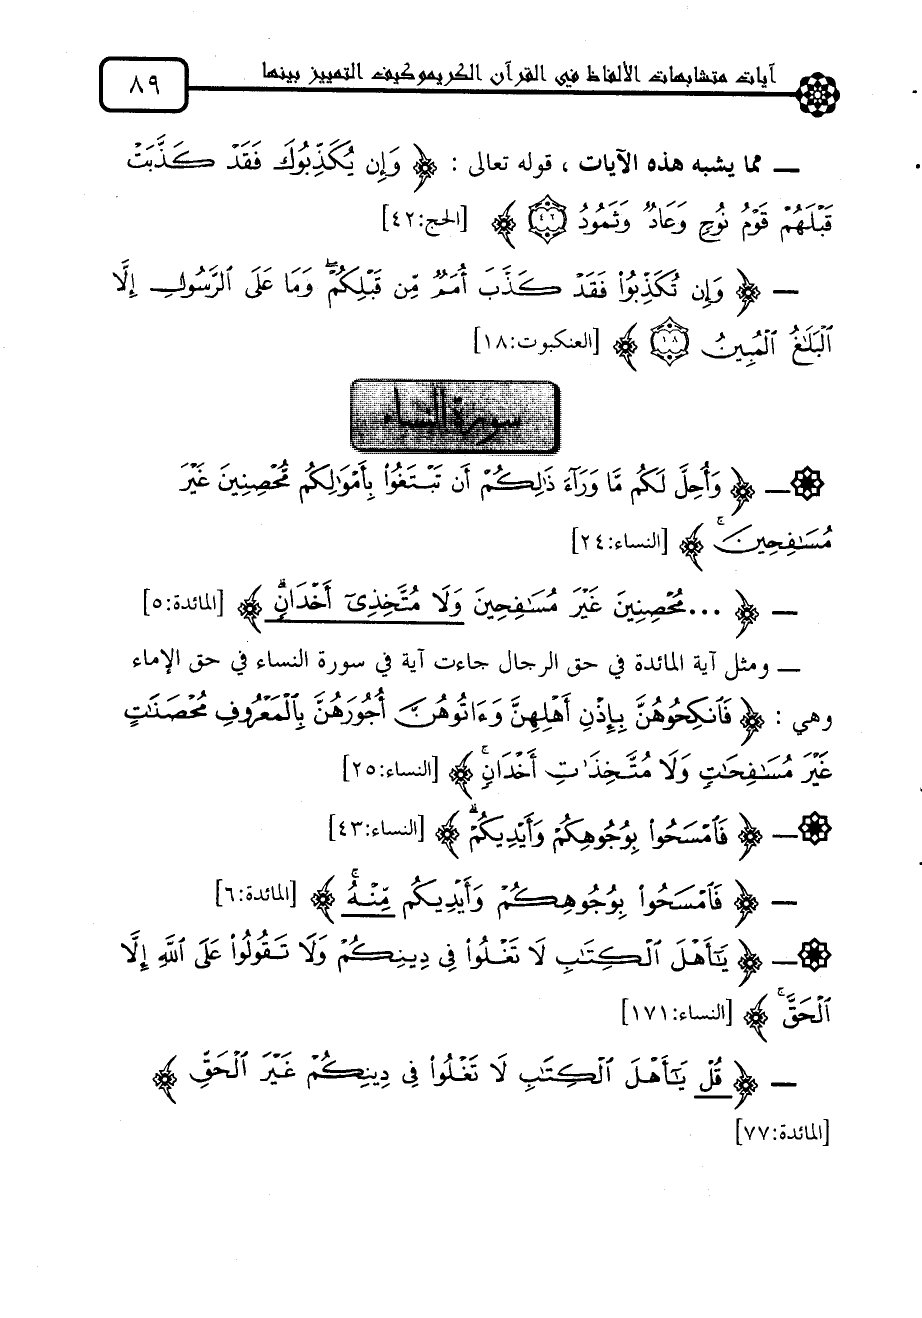 آيات متشابهات الألفاظ في القرآن الكريم وكيف التمييز بينها
٨٩
ــ مما يشبه هذه الآيات ، قوله تعالى : ﴿ وَإِن يُكَذِّبُوكَ فَقَدْ كَذَّبَتْ
قَبْلَهُمْ قَوْمُ نُوحٍ وَعَادٌ وَثَمُودُ ٤٢ ﴾ [الحج:٤٢]
ــ ﴿ وَإِن تُكَذِّبُوا۟ فَقَدْ كَذَّبَ أُمَمٌ مِّن قَبْلِكُمْ ۖ وَمَا عَلَى ٱلرَّسُولِ إِلَّا
ٱلْبَلَٰغُ ٱلْمُبِينُ ١٨ ﴾ [العنكبوت:١٨]
سورة النساء
ــ ﴿ وَأُحِلَّ لَكُم مَّا وَرَآءَ ذَٰلِكُمْ أَن تَبْتَغُوا۟ بِأَمْوَٰلِكُم مُّحْصِنِينَ غَيْرَ
مُسَٰفِحِينَ ۚ ﴾ [النساء:٢٤]
ــ ﴿ ...مُحْصِنِينَ غَيْرَ مُسَٰفِحِينَ وَلَا مُتَّخِذِىٓ أَخْدَانٍ ۗ ﴾ [المائدة:٥]
ــ ومثل آية المائدة في حق الرجال جاءت آية في سورة النساء في حق الإماء
وهي : ﴿ فَٱنكِحُوهُنَّ بِإِذْنِ أَهْلِهِنَّ وَءَاتُوهُنَّ أُجُورَهُنَّ بِٱلْمَعْرُوفِ مُحْصَنَٰتٍ
غَيْرَ مُسَٰفِحَٰتٍ وَلَا مُتَّخِذَٰتِ أَخْدَانٍ ۚ ﴾ [النساء:٢٥]
ــ ﴿ فَٱمْسَحُوا۟ بِوُجُوهِكُمْ وَأَيْدِيكُمْ ۗ ﴾ [النساء:٤٣]
ــ ﴿ فَٱمْسَحُوا۟ بِوُجُوهِكُمْ وَأَيْدِيكُم مِّنْهُ ۚ ﴾ [المائدة:٦]
ــ ﴿ يَٰٓأَهْلَ ٱلْكِتَٰبِ لَا تَغْلُوا۟ فِى دِينِكُمْ وَلَا تَقُولُوا۟ عَلَى ٱللَّهِ إِلَّا
ٱلْحَقَّ ۚ ﴾ [النساء:١٧١]
ــ ﴿ قُلْ يَٰٓأَهْلَ ٱلْكِتَٰبِ لَا تَغْلُوا۟ فِى دِينِكُمْ غَيْرَ ٱلْحَقِّ ﴾
[المائدة:٧٧]